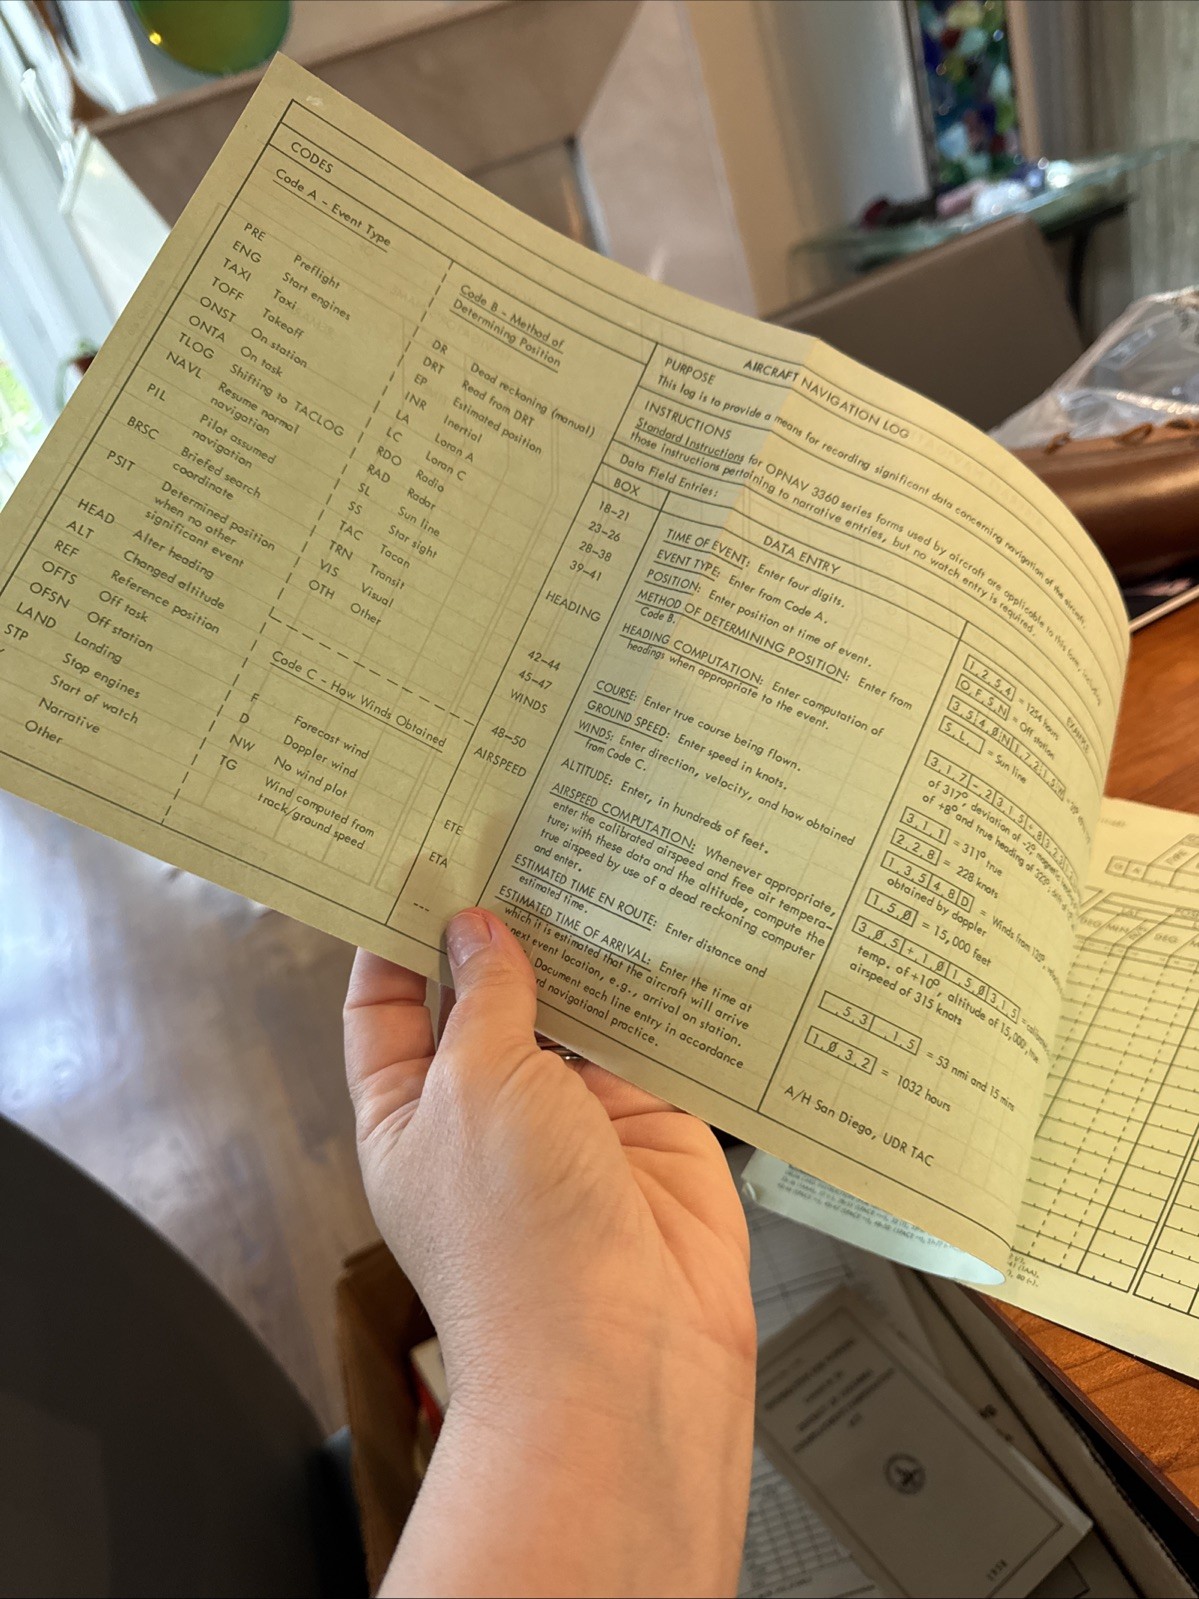 CODES
Code A - Event Type
PRE Preflight
ENG Start engines
TAXI Taxi
TOFF Takeoff
ONST On station
ONTA On task
TLOG Shifting to TACLOG
NAVL Resume normal
navigation
PIL Pilot assumed
navigation
BRSC Briefed search
coordinate
PSIT Determined position
when no other
significant event
HEAD Alter heading
ALT Changed altitude
REF Reference position
OFTS Off task
OFSN Off station
LAND Landing
STP Stop engines
Start of watch
Narrative
Other
Code B - Method of
Determining Position
DR Dead reckoning (manual)
DRT Read from DRT
EP Estimated position
INR Inertial
LA Loran A
LC Loran C
RDO Radio
RAD Radar
SL Sun line
SS Star sight
TAC Tacan
TRN Transit
VIS Visual
OTH Other
Code C - How Winds Obtained
F Forecast wind
D Doppler wind
NW No wind plot
TG Wind computed from
track/ground speed
AIRCRAFT NAVIGATION LOG
PURPOSE
This log is to provide a means for recording significant data concerning navigation of the aircraft.
INSTRUCTIONS
Standard Instructions for OPNAV 3360 series forms used by aircraft are applicable to this form, including
those instructions pertaining to narrative entries, but no watch entry is required.
Data Field Entries:
BOX DATA ENTRY EXAMPLE
18-21 TIME OF EVENT: Enter four digits. 1254 = 1254 hours
23-26 EVENT TYPE: Enter from Code A. OFSN = Off station
28-38 POSITION: Enter position at time of event.
39-41 METHOD OF DETERMINING POSITION: Enter from
Code B.
SL = Sun line
HEADING HEADING COMPUTATION: Enter computation of
headings when appropriate to the event.
of 317°, deviation of -2°, magnetic
of +8° and true heading of
42-44 COURSE: Enter true course being flown. 311 = 311° true
45-47 GROUND SPEED: Enter speed in knots. 228 = 228 knots
WINDS WINDS: Enter direction, velocity, and how obtained
from Code C.
13548D = Winds from
obtained by doppler
48-50 ALTITUDE: Enter, in hundreds of feet. 15Ø = 15,000 feet
AIRSPEED AIRSPEED COMPUTATION: Whenever appropriate,
enter the calibrated airspeed and free air tempera-
ture; with these data and the altitude, compute the
true airspeed by use of a dead reckoning computer
and enter.
3Ø5+1Ø15Ø315 =
temp. of +10°, altitude of 15,000', true
airspeed of 315 knots
ETE ESTIMATED TIME EN ROUTE: Enter distance and
estimated time.
53 15 = 53 nmi and 15 mins
ETA ESTIMATED TIME OF ARRIVAL: Enter the time at
which it is estimated that the aircraft will arrive
next event location, e.g., arrival on station.
1Ø32 = 1032 hours
--- Document each line entry in accordance
navigational practice.
A/H San Diego, UDR TAC